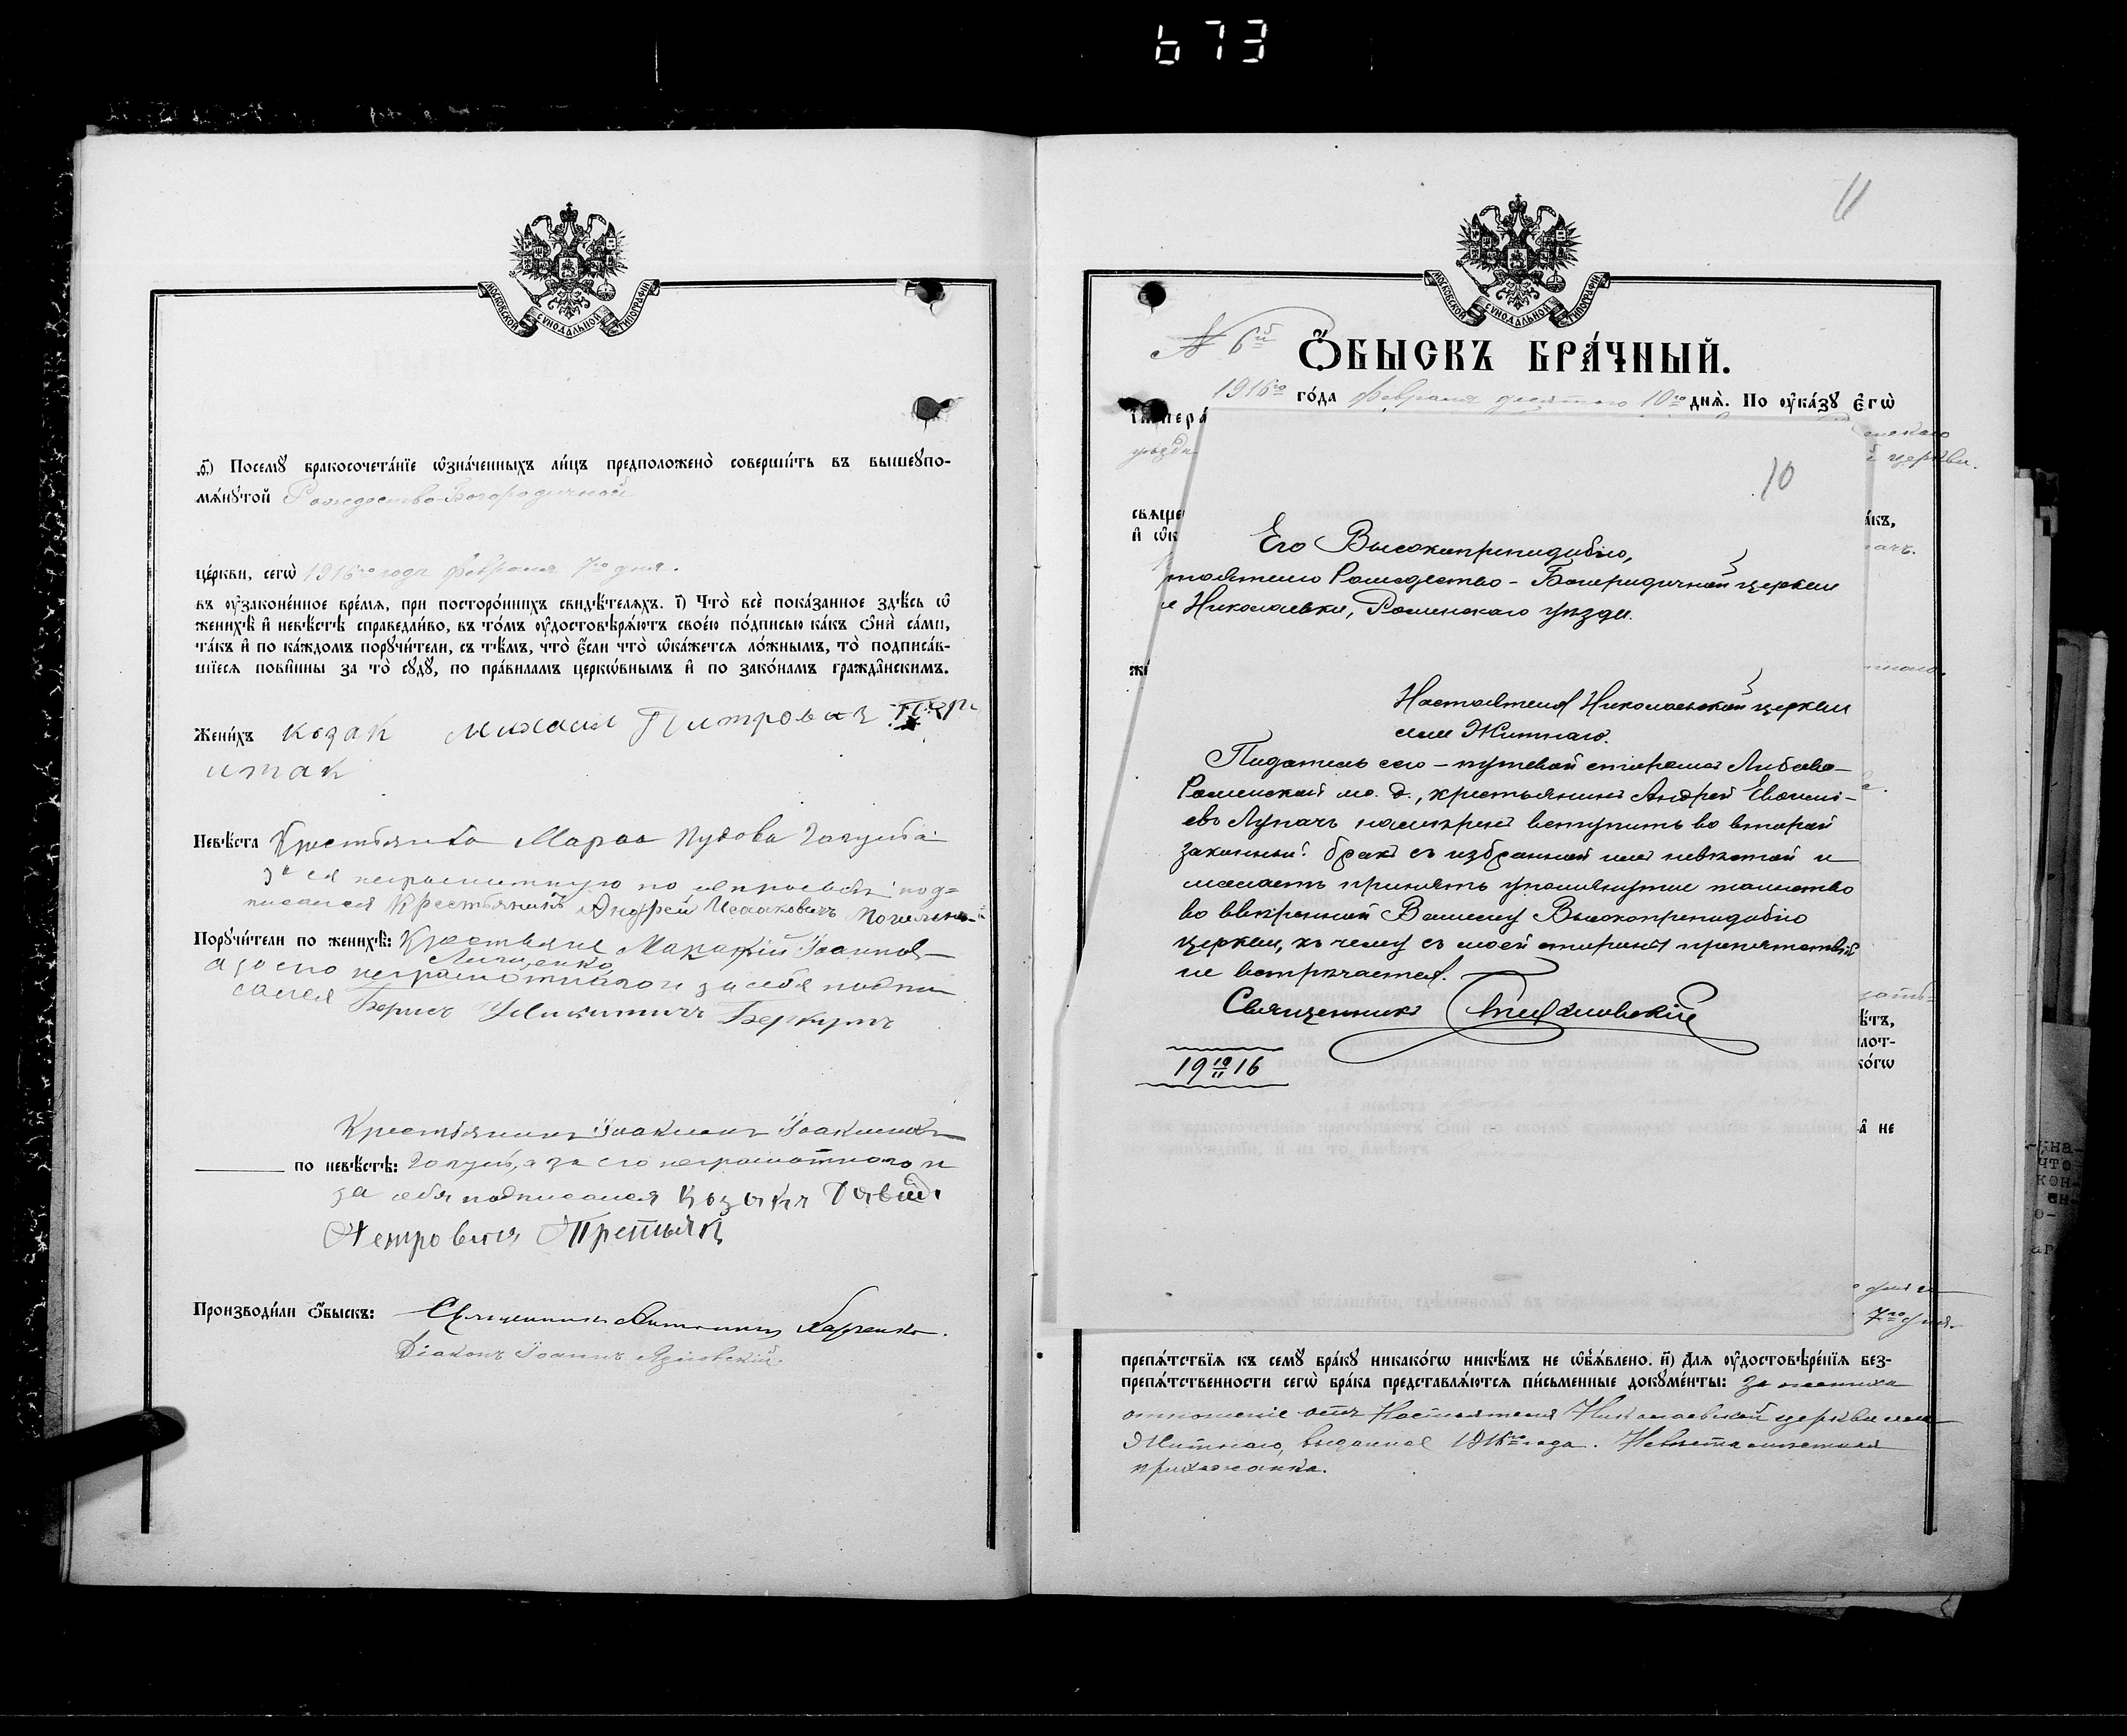 673
МОСКОВСКОЙ СѴНОДАЛЬНОЙ ТИПОГРАФІИ
ѳ҃) Посемꙋ̀ бракосочета́нїе ѡ҆зна́ченныхъ ли́цъ предположено̀ соверши́ть въ вышеꙋпо-
мѧ́нꙋтой Рождество-Богородичной
це́ркви, сегѡ̀ 1916го года февраля 7го дня.
въ ᲂу҆зако́ненное вре́мѧ, при посторо́ннихъ свидѣ́телѧхъ. і҃) Что̀ всѐ пока́занное здѣ́сь ѡ҆
женихѣ̀ и҆ невѣ́стѣ справедли́во, въ то́мъ ᲂу҆достовѣрѧ́ютъ свое́ю по́дписью ка́къ ѻ҆нѝ са́ми,
та́къ и҆ по ка́ждомъ порꙋчи́тели, съ тѣ́мъ, что̀ є҆́сли что̀ ѡ҆ка́жетсѧ ло́жнымъ, то̀ подписа́в-
шїесѧ пови́нны за то̀ сꙋдꙋ̀, по пра́виламъ церко́внымъ и҆ по зако́намъ гражда́нскимъ.
Жени́хъ козак Михаил Питровичъ
Невѣ́ста Крестьянка Марѳа Пудова Голуба
за ея неграмотную по ея просьбѣ под=
писался Крестьянинъ Андрей Исааковичъ
Порꙋчи́тели по женихѣ̀: Крестьяне Макарій Іоаннов
а за его неграмотнаго и за себя подпи
сался Борисъ Никитичъ Беркутъ
Крестьянинъ Іоакимъ Іоакимовъ
по невѣ́стѣ: Голубъ, а за его неграмотнаго и
за себя подписался козакъ Давид
Петровичъ Третьякъ
Производи́ли ѻ҆́быскъ: Священникъ Антоній
Діаконъ Іоаннъ
11
МОСКОВСКОЙ СѴНОДАЛЬНОЙ ТИПОГРАФІИ
№ 6й
Ѻ҆́БЫСКЪ БРА́ЧНЫЙ.
1916го го́да февраля десятого 10го днѧ̀. По ᲂу҆ка́зꙋ є҆гѡ̀
І҆мпера́
уѣзда
церкви.
10
свѧще
и҆ ѡ҆к
а́къ,
Его Высокопреподобію,
Настоятелю Рождество-Богородичной церкви
с. Николаевки, Роменскаго уѣзда.
жи́
Настоятеля Николаевской церкви
села Житнаго.
Податель сего - путевой сторожъ Либаво-
Роменской ж. д., крестьянинъ Андрей Евѳимі-
евъ Лупачъ намѣренъ вступить во второй
законный бракъ съ избранной имъ невѣстой и
желаетъ принять упомянутое таинство
во ввѣренной Вашему Высокопреподобію
церкви, къ чему съ моей стороны препятствій
не встрѣчается.
Священникъ
19 10/II 16
ѣ́тъ,
пло́т-
ко́гѡ
и҆ не
7го дня.
препѧ́тствїѧ къ семꙋ̀ бра́кꙋ никако́гѡ никѣ́мъ не ѡ҆б̾ѧ́влено. и҃) Длѧ ᲂу҆достовѣре́нїѧ без-
препѧ́тственности сегѡ̀ бра́ка представлѧ́ютсѧ пи́сьменные докꙋме́нты: За жениха
отношеніе отъ Настоятеля Николаевской церкви села
Житнаго, выданное 1916го года. Невѣста мѣстная
прихожанка.